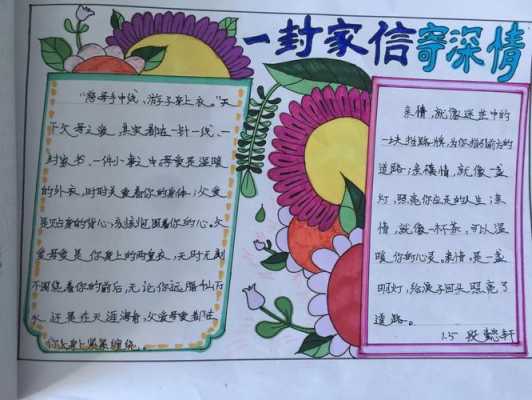 一封家信寄深情
"慈母手中线,游子身上衣。"天
下父母之爱,其实都在一针一线、一
封家书、一件小事之中母爱是温暖
的外衣,时时关爱着你的身体;父爱
是贴身的背心,永远包围着你的心。父
爱母爱是你身上的两重衣,无时无刻
不围绕着你的前后,无论你远隔千山万
水,还是在天涯海角,父爱母爱都在
你身上紧紧缠绕。
亲情,就像迷茫中的
一块指路牌,为你指引前方的
道路;亲情,就像一盏
灯,照亮你的人生;亲
情,就像一杯茶,可以温
暖你的心灵。亲情,是一盏
明灯,给浪子回头照亮了
道路。
1.5 段懿轩